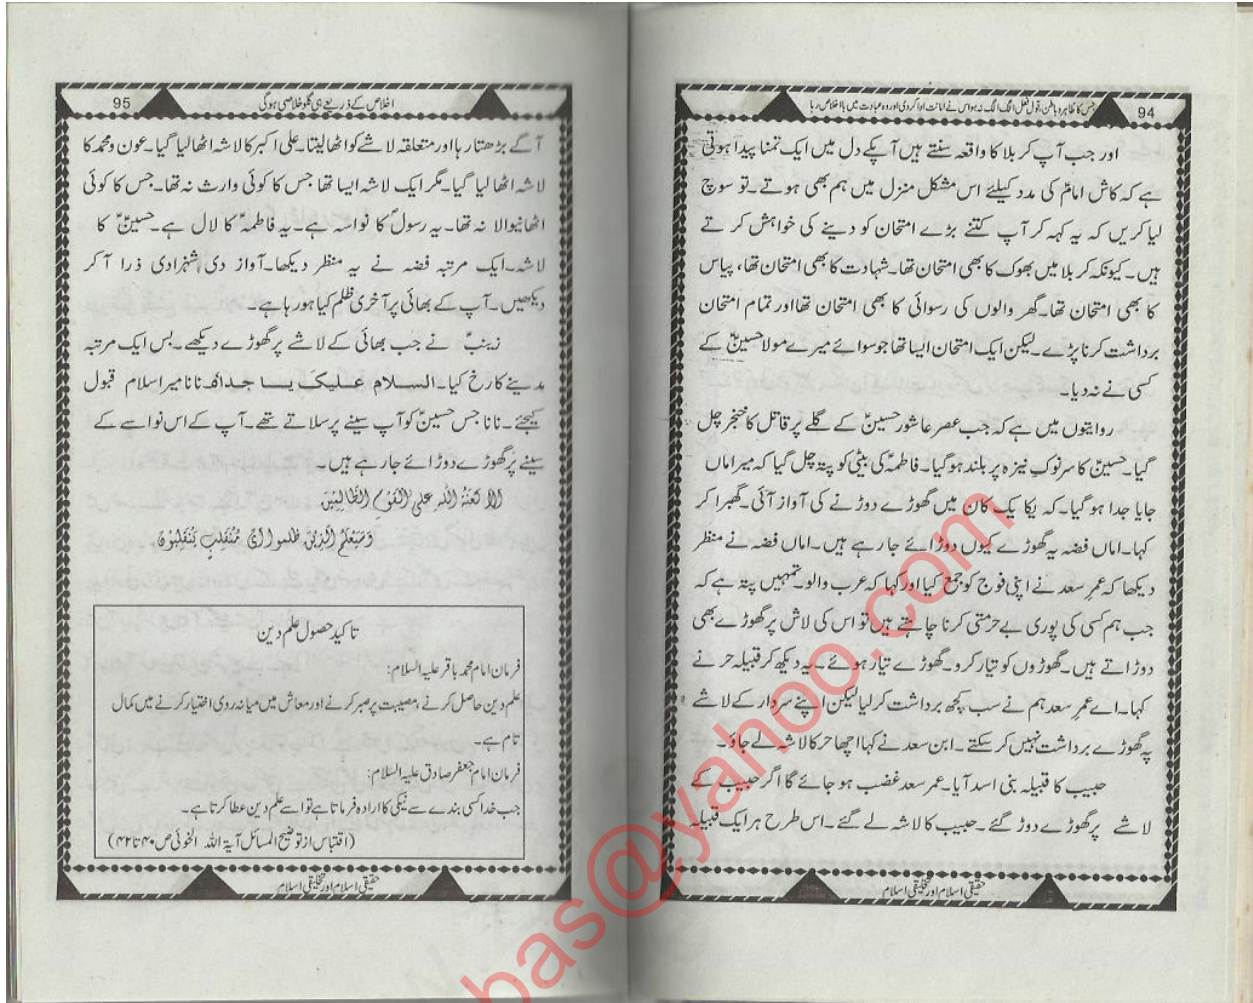 94
جس کا ظاہر و باطن، قول فعل الگ الگ نہ ہو اس نے امانت ادا کردی اور وہ عبادت میں با اخلاص رہا
اور جب آپ کربلا کا واقعہ سنتے ہیں آپکے دل میں ایک تمنا پیدا ہوتی
ہے کہ کاش امامؑ کی مدد کیلئے اس مشکل منزل میں ہم بھی ہوتے۔ تو سوچ
لیا کریں کہ یہ کہہ کر آپ کتنے بڑے امتحان کو دینے کی خواہش کرتے
ہیں۔ کیونکہ کربلا میں بھوک کا بھی امتحان تھا۔ شہادت کا بھی امتحان تھا، پیاس
کا بھی امتحان تھا۔ گھر والوں کی رسوائی کا بھی امتحان تھا اور تمام امتحان
برداشت کرنا پڑے۔ لیکن ایک امتحان ایسا تھا جو سوائے میرے مولا حسینؑ کے
کسی نے نہ دیا۔
روایتوں میں ہے کہ جب عصر عاشور حسینؑ کے گلے پر قاتل کا خنجر چل
گیا۔ حسینؑ کا سر نوکِ نیزہ پر بلند ہوگیا۔ فاطمہؑ کی بیٹی کو پتہ چل گیا کہ میرا ماں
جایا جدا ہو گیا۔ کہ یکا یک کان میں گھوڑے دوڑنے کی آواز آئی۔ گھبرا کر
کہا۔ اماں فضہ یہ گھوڑے کیوں دوڑائے جارہے ہیں۔ اماں فضہ نے منظر
دیکھا کہ عمرِ سعد نے اپنی فوج کو جمع کیا اور کہا کہ عرب والو۔ تمہیں پتہ ہے کہ
جب ہم کسی کی پوری بے حرمتی کرنا چاہتے ہیں تو اس کی لاش پر گھوڑے بھی
دوڑاتے ہیں۔ گھوڑوں کو تیار کرو۔ گھوڑے تیار ہوئے۔ یہ دیکھ کر قبیلہ حر نے
کہا۔ اے عمرِ سعد ہم نے سب کچھ برداشت کر لیا لیکن اپنے سردار کے لاشے
پہ گھوڑے برداشت نہیں کر سکتے۔ ابن سعد نے کہا اچھا حر کا لاشہ لے جاؤ۔
حبیب کا قبیلہ بنی اسد آیا۔ عمر سعد غضب ہو جائے گا اگر حبیب کے
لاشے پر گھوڑے دوڑ گئے۔ حبیب کا لاشہ لے گئے۔ اس طرح ہر ایک قبیلہ
حقیقی اسلام اور تخلیقی اسلام
95
اخلاص کے ذریعے ہی گلو خلاصی ہوگی
آگے بڑھتا رہا اور متعلقہ لاشے کو اٹھا لیتا۔ علی اکبر کا لاشہ اٹھا لیا گیا۔ عون و محمد کا
لاشہ اٹھا لیا گیا۔ مگر ایک لاشہ ایسا تھا جس کا کوئی وارث نہ تھا۔ جس کا کوئی
اٹھانیوالا نہ تھا۔ یہ رسولؐ کا نواسہ ہے۔ یہ فاطمہؑ کا لال ہے۔ حسینؑ کا
لاشہ۔ ایک مرتبہ فضہ نے یہ منظر دیکھا۔ آواز دی شہزادی ذرا آکر
دیکھیں۔ آپ کے بھائی پر آخری ظلم کیا ہورہا ہے۔
زینبؑ نے جب بھائی کے لاشے پر گھوڑے دیکھے۔ بس ایک مرتبہ
مدینے کا رخ کیا۔ السلام علیک یا جداہ نانا میرا سلام قبول
کیجئے۔ نانا جس حسینؑ کو آپ سینے پر سلاتے تھے۔ آپ کے اس نواسے کے
سینے پر گھوڑے دوڑائے جارہے ہیں۔
اَلا لَعْنَۃُ اللہِ عَلَی الْقَوْمِ الظَّالِمِیْنَ
وَسَیَعْلَمُ الَّذِیْنَ ظَلَمُوا اَیَّ مُنْقَلَبٍ یَنْقَلِبُوْنَ
تاکید حصول علم دین
فرمان امام محمد باقر علیہ السلام:
علم دین حاصل کرنے، مصیبت پر صبر کرنے اور معاش میں میانہ روی اختیار کرنے میں کمال
تام ہے۔
فرمان امام جعفر صادق علیہ السلام:
جب خدا کسی بندے سے نیکی کا ارادہ فرماتا ہے تو اسے علم دین عطا کرتا ہے۔
(اقتباس از توضیح المسائل آیۃ اللہ الخوئی ص ۴۰ تا ۴۲)
حقیقی اسلام اور تخلیقی اسلام
bas@yahoo.com